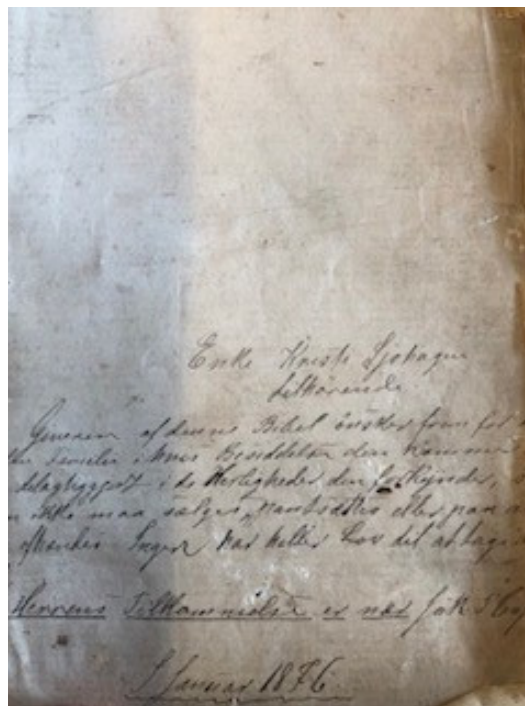 Enke Kirsti Sjohagen
tilhørende
Giveren af denne Bibel ønsker frem for
Familie i hvis Besiddelse den kommer
delagtiggjort i de Herligheder den forkynder,
ikke maa sælges, Pantsættes eller paa
afhændes Ingen har heller Lov til at tage
Herrens Tilkommelse er nær Jak 5
1 Januar 1876